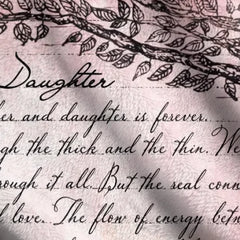 Daughter
her and daughter is forever.
gh the thick and the thin. We
rough it all. But the real conn
l love. The flow of energy betw